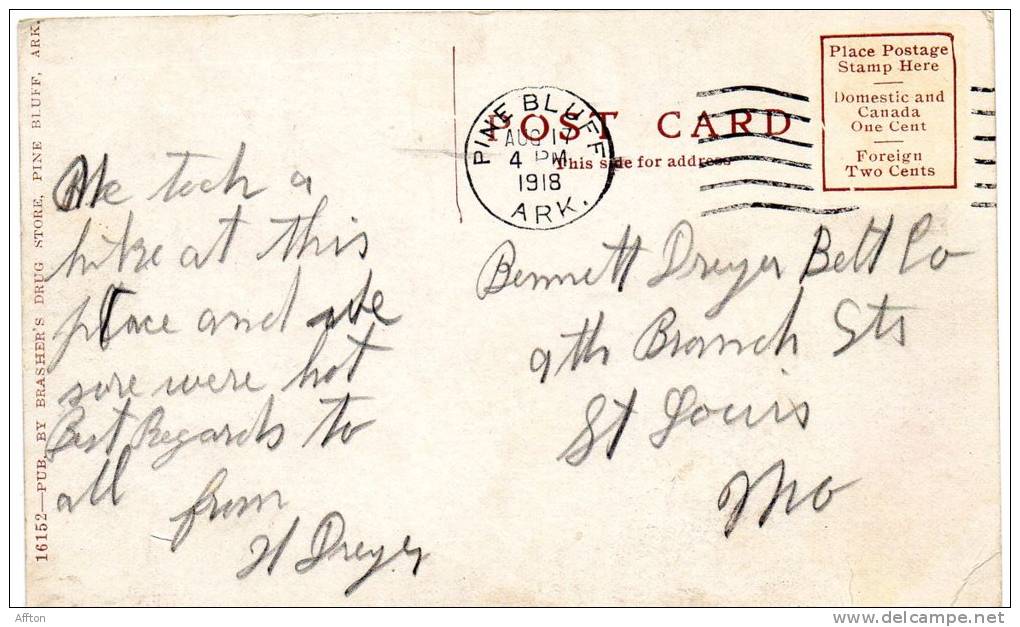 16152—PUB. BY BRASHER'S DRUG STORE, PINE BLUFF, ARK.
We took a
hike at this
place and we
sure were hot
Best Regards to
all
from
H Dreyer
POST CARD
This side for address
PINE BLUFF
AUG 17
4 PM
1918
ARK.
Place Postage
Stamp Here
Domestic and
Canada
One Cent
Foreign
Two Cents
Bennett Dreyer Belt Co
9th Branch Sts
St Louis
Mo
Affton
http://www.delcampe.net